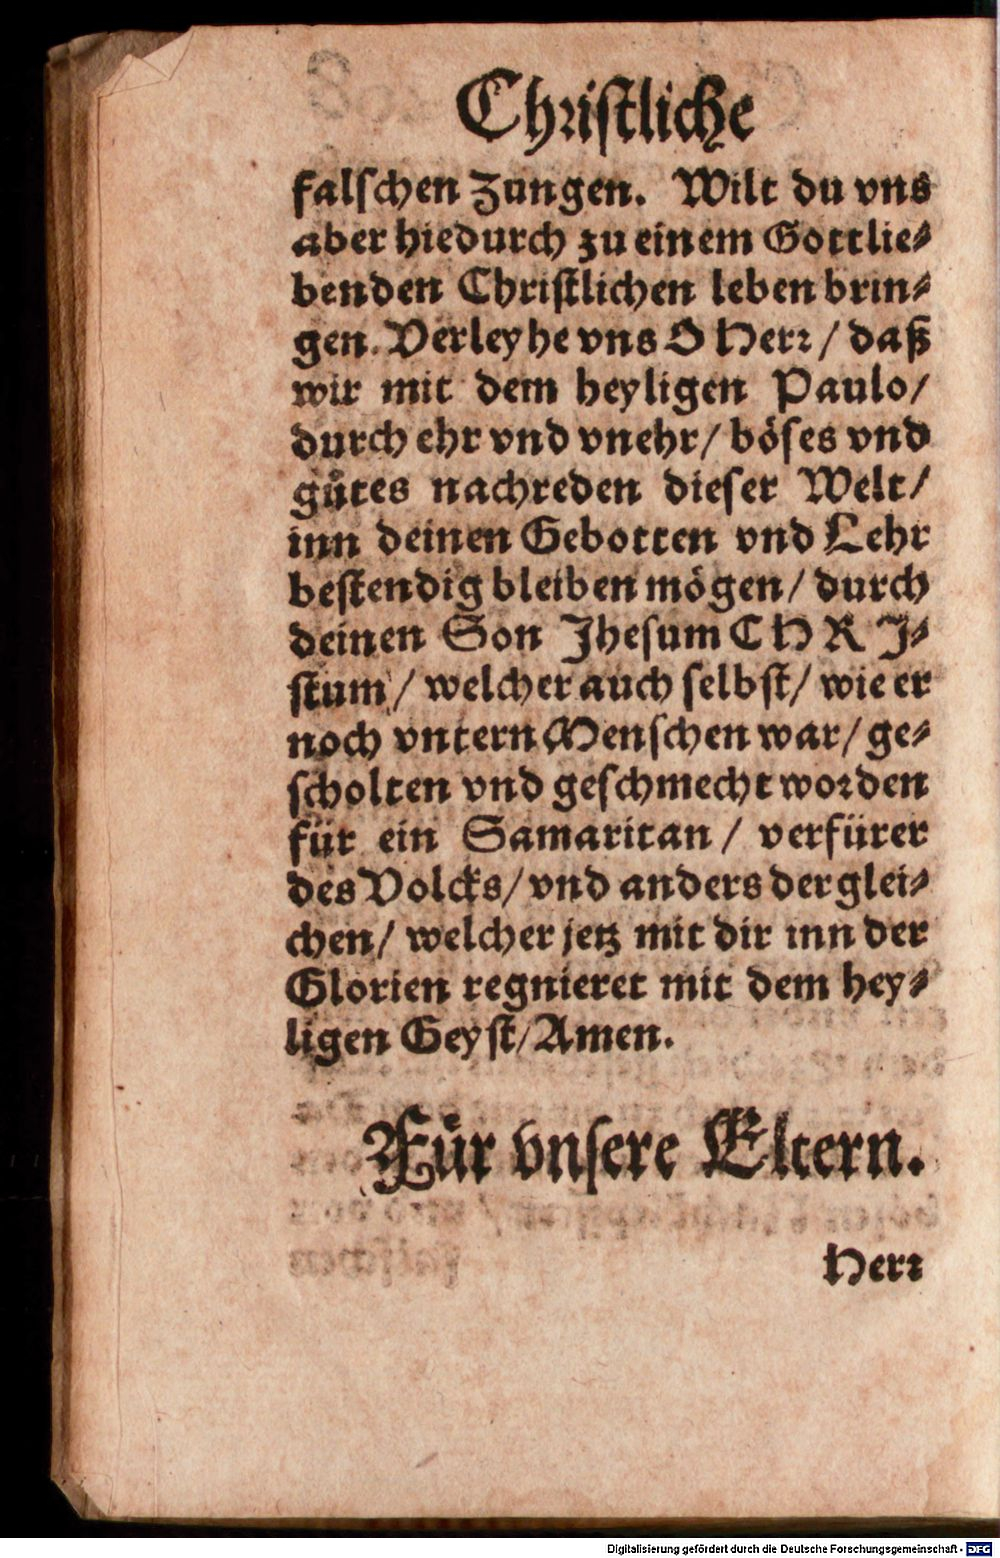 Christliche
falschen Zungen. Wilt du vns
aber hiedurch zu einem Gottlie⸗
benden Christlichen leben brin⸗
gen. Verleyhe vns O Herr / daß
wir mit dem heyligen Paulo /
durch ehr vnd vnehr / böses vnd
gůtes nachreden dieser Welt /
inn deinen Gebotten vnd Lehr
bestendig bleiben mögen / durch
deinen Son Jhesum CHRJ⸗
stum / welcher auch selbst / wie er
noch vntern Menschen war / ge⸗
scholten vnd geschmecht worden
für ein Samaritan / verfürer
des Volcks / vnd anders derglei⸗
chen / welcher jetz mit dir inn der
Glorien regnieret mit dem hey⸗
ligen Geyst / Amen.
Für vnsere Eltern.
Herr
Digitalisierung gefördert durch die Deutsche Forschungsgemeinschaft - DFG